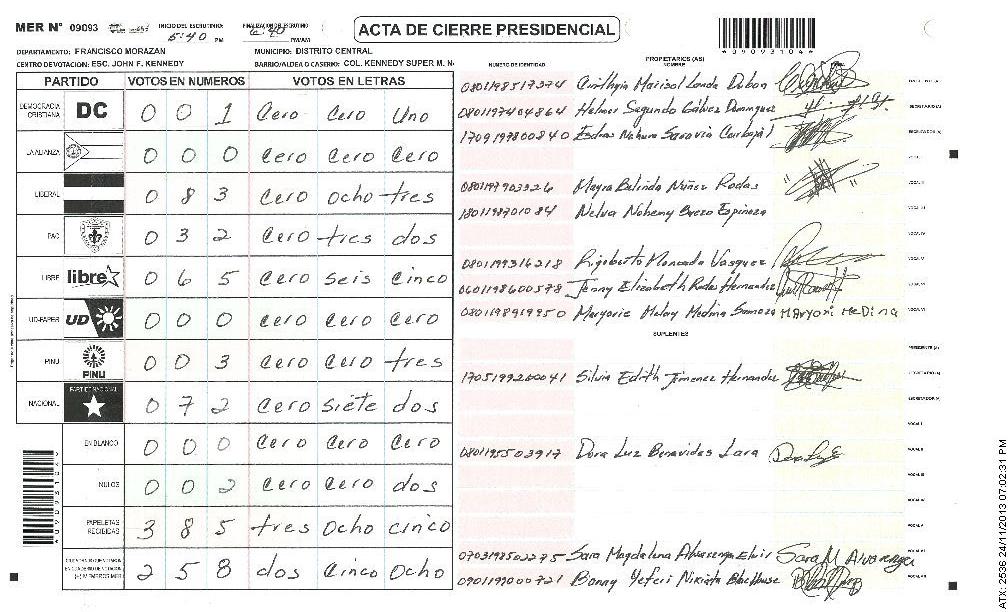 MER Nº 09093 INICIO DEL ESCRUTINIO: 5:40 PM FINALIZACION DEL ESCRUTINIO 6:40 PM/AM
ACTA DE CIERRE PRESIDENCIAL
*09093104*
DEPARTAMENTO: FRANCISCO MORAZAN MUNICIPIO: DISTRITO CENTRAL
CENTRO DE VOTACION: ESC. JOHN F. KENNEDY BARRIO/ALDEA O CASERIO: COL. KENNEDY SUPER M. N
PARTIDO VOTOS EN NUMEROS VOTOS EN LETRAS
DEMOCRACIA CRISTIANA DC 0 0 1 Cero Cero Uno
LA ALIANZA 0 0 0 Cero Cero Cero
LIBERAL 0 8 3 Cero ocho tres
PAC 0 3 2 Cero tres dos
LIBRE libre 0 6 5 Cero seis cinco
UD-FAPER UD 0 0 0 Cero Cero Cero
PINU PINU 0 0 3 Cero Cero tres
NACIONAL PARTIDO NACIONAL 0 7 2 Cero siete dos
EN BLANCO 0 0 0 Cero Cero Cero
NULOS 0 0 2 Cero Cero dos
PAPELETAS RECIBIDAS 3 8 5 tres ocho cinco
2 5 8 dos Cinco Ocho
NUMERO DE IDENTIDAD PROPIETARIOS (AS) NOMBRE
0801198517374 Cinthya Marisol Landa Dubon
0801197404864 Helmer Segundo Gálvez Dominguez
1709197800840 Esdras Nahum Saravia Carbajal
Mayra Belinda Núñez Rodas
1801198701084 Nelva Nohemy Bueso Espinoza
0801199316218 Rigoberto Moncada Vasquez
0601198600578 Jenny Elizabeth Rodas Hernandez
0801198919950 Maryorie Melany Medina Samoza Maryori Medina
SUPLENTES
1705199200041 Silvia Edith Jimenez Hernandez
0801195503917 Dora Luz Benavides Lara
0703198502275 Sara Magdalena Alvarenga Sara M Alvarenga
0901199000721 Bonny Yeferi
ATX-2536 24/11/2013 07:02:31 PM